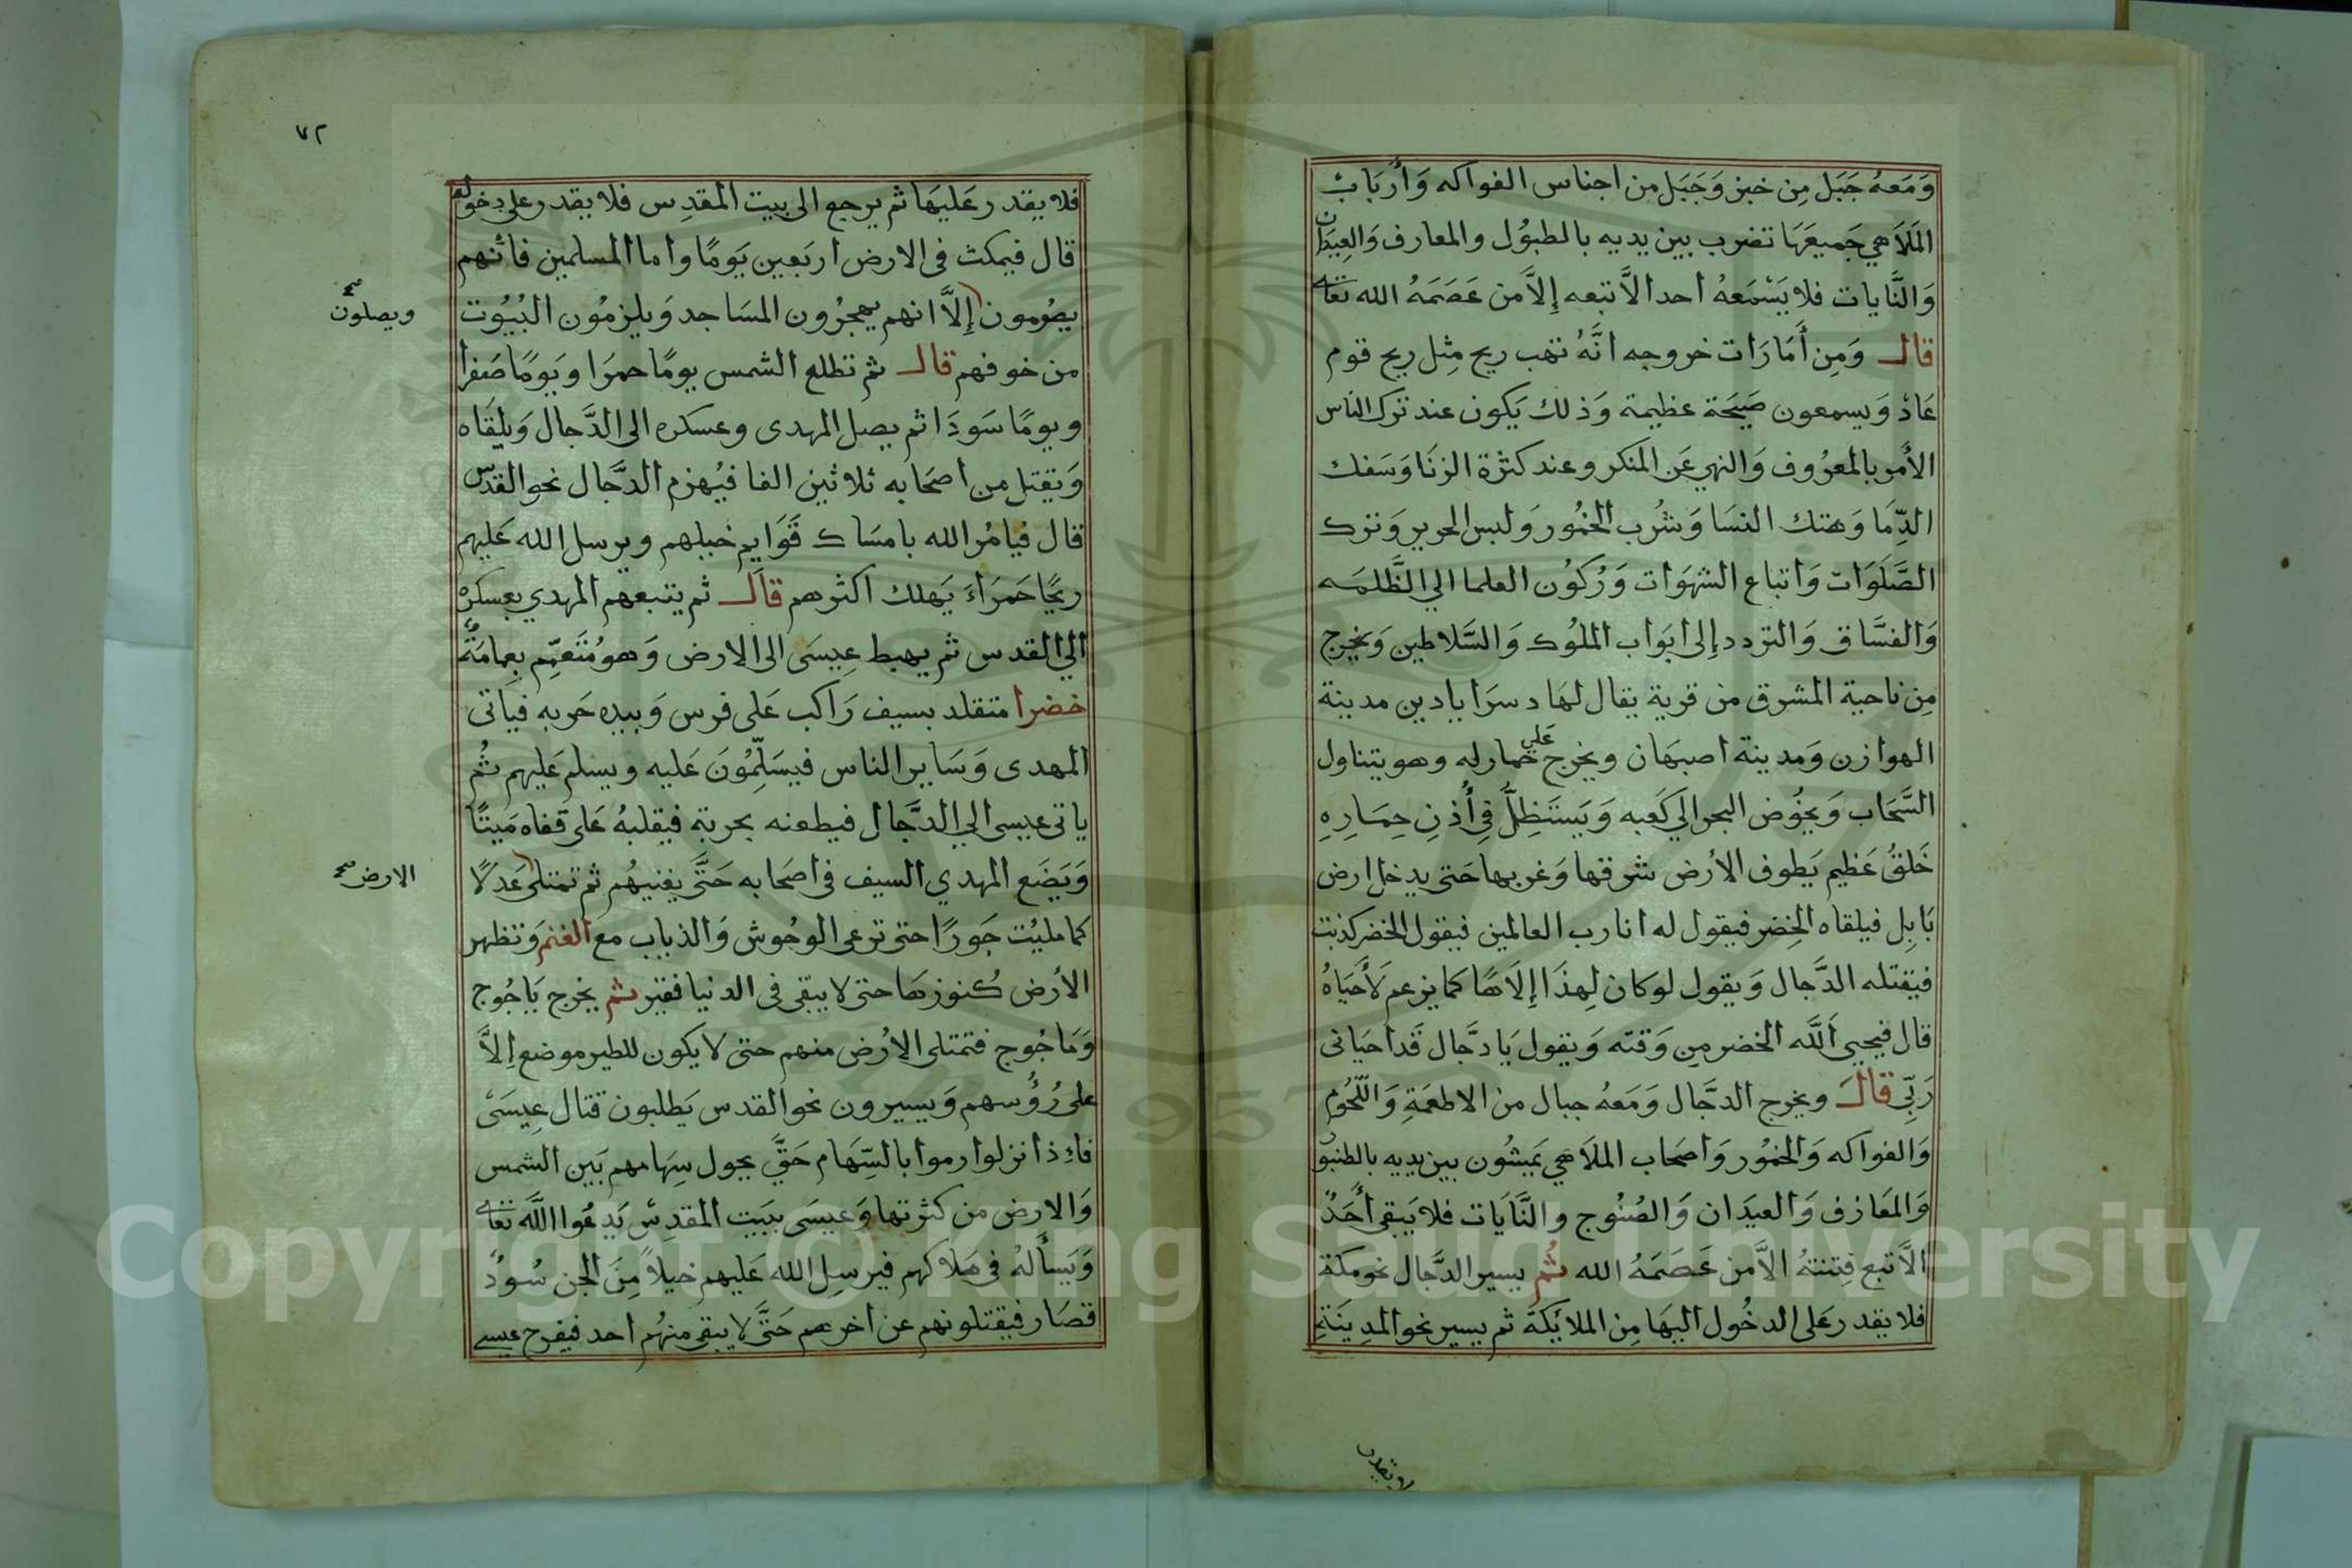 وَمَعهُ جَبَل مِن خبز وَجَبَل من اجناس الفواكه وَأربَابُ
المَلَاهي جَميعَهَا تضرب بين يديه بالطبوُل والمعارف وَالعِيدَان
وَالنَّايات فلا يَسْمَعهُ احد الاَّ تبعه إِلاَّ من عَصَمَهُ الله تعالى
قال وَمِن أَمَارَات خروجه انَّهُ تهب ريح مِثل ريح قوم
عَادْ وَيسمعون صَيحَة عظيمة وَذلك يَكون عند ترك الناس
الأمر بالمعرُوف وَالنهي عَن المنكر وعند كثرة الزنَا وَسَفك
الدِّمَا وَهتك النسَا وَشُرب الخمُور وَلبس الحرير وَترك
الصَّلَوَات وَاتباع الشهَوَات وَرُكوُن العلما الي الظَّلمَه
وَالفسَّاق وَالتردد إِلى ابوَاب الملوُك وَالسَّلاطين وَيخرج
مِن ناحية المشرق من قرية يقال لهَا دسرَاباد بين مدينة
الهوازن وَمدينة اصبهَان ويخرج عَلى حمار له وهو يتناول
السَّحَاب وَيخُوض البحر الَي كَعبه وَيَستَظِلُّ فِي أُذنِ حِمَارِهِ
خَلقُ عَظيم يَطوف الأرض شرقها وَغربها حَتى يدخل ارض
بَابِل فيلقاه الخِضر فيقول له انا رب العالمين فيقول الخضر كذبت
فيقتله الدَّجال وَيقول لو كان لِهذَا إِلاَهًا كما يزعم لَأَحيَاهُ
قال فيحيي اَللَّه الخضر مِن وَقته وَيقول يَا دَجَّال قَد احيَانى
رَبِّي قال ويخرج الدجَّال وَمَعهُ جبال من الاطعمَةِ وَاللّحُوم
وَالفواكه وَالخمُور وَاصحَاب الملَاهي يَمشُون بين يديه بالطنبوُ
وَالمَعَازف وَالعيَدان وَالصُنُوج والنَّايَات فلا يَبقى أَحَدٌ
الاَّ تبع فِتنتهُ الاَّ من عَصَمَهُ الله ثم يسير الدَّجال نحو مكَة
فلا يقدر عَلى الدخُول اليهَا مِن الملائكَة ثم يسير نحو المدِينَةِ
٧٢
فلا يقدر عَليهَا ثم يرجع الى بيت المقدِس فلا يقدر على دخوله
قال فيمكث فى الارض اربَعين يَومًا واما المسلمين فانهم
يصُومون إِلاَّ انهم يهجرُون المسَاجد وَيلزمُون البُيُوت
ويصلون صح
من خوفهم قال ثم تطلع الشمس يومًا حمرَا ويَومًا صَفرا
ويومًا سَودَا ثم يصل المهدى وعسكره الى الدَّجال وَيلقَاه
وَيقتل من اصحَابه ثلاثين الفا فيُهزم الدجَّال نحو القدس
قال فيامُر الله بامسَاك قَوَايم خيلهم ويرسل الله عَليهم
ريحًا حَمرَاءَ يَهلك اكثرهم قال ثم يتبعهم المهدي بعسكره
الي القدس ثم يهبط عِيسَى الى الارض وَهو مُتَعمِّم بعِمامَةٍ
خضرا متقلد بسيف رَاكب عَلى فرس وَبيده حَربه فياتى
المهدى وَسَاير الناس فيسَلِّمُونَ عَليه ويسلم عَليهم ثُم
ياتى عيسى الي الدجَّال فيطعنه بحربة فيقلبهُ عَلى قفاه مَيتًا
وَيَضَع المهدي السيف فى اصحَابه حَتَّى يفنيهُم ثم تمتلى عَدلاً
الارض صح
كما مليُت جَورًا حتى ترعى الوحُوش وَالذياب مع الغنم وَتظهر
الأرض كُنوزهَا حتى لا يبقى فى الدنيا فقير ثم يخرج يَاجُوج
وَمَاجُوج فتمتلى الارُض منهم حتى لا يكون للطير موضع إلاَّ
على رُؤُسهم وَيسيرون نحو القدس يَطلبون قتال عِيسَىْ
فاءِذا نزلوا رموا بالسِّهَام حَتَّى يحول سِهَامهم بَين الشمس
وَالارض من كثرتها وَعيسَى ببَيت المقدِسْ يَدعُوا اللَّه تعالى
وَيَسأَلهُ فى هَلاكهم فيرسِل الله عَليهم خيلاً مِنَ الجن سُودٌ
قصَار فيقتلونهم عن اخرهم حَتَّى لا يبقى منهُم احد فيفرح عيسى
Copyright © King Saud University